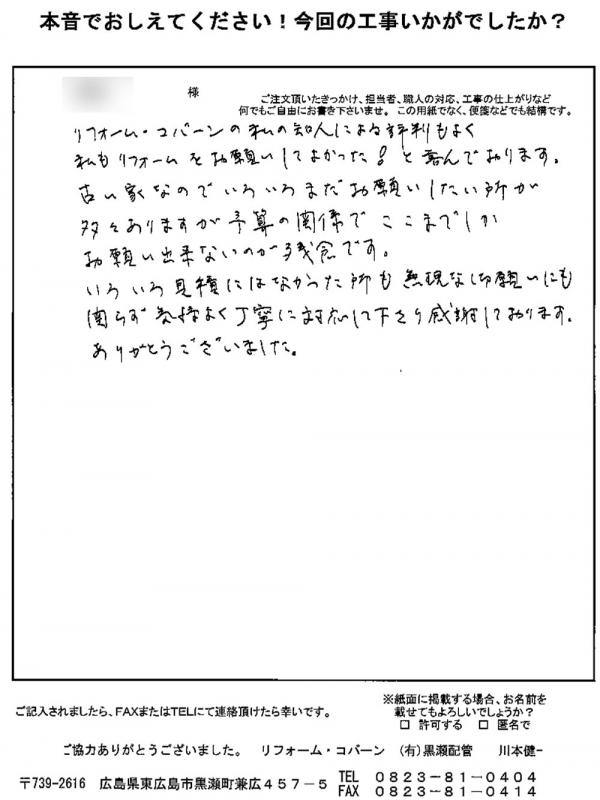 本音でおしえてください！今回の工事いかがでしたか？
様
ご注文頂いたきっかけ、担当者、職人の対応、工事の仕上がりなど
何でもご自由にお書き下さいませ。この用紙でなく、便箋などでも結構です。
リフォーム・コバーンの私の知人による評判もよく
私もリフォームをお願いしてよかった！と喜んでおります。
古い家なのでいろいろまだお願いしたい所が
多々ありますが予算の関係でここまでしか
お願い出来ないのが残念です。
いろいろ見積にはなかった所も無理なお願いにも
関らず気持よく丁寧に対応して下さり感謝しております。
ありがとうございました。
ご記入されましたら、FAXまたはTELにて連絡頂けたら幸いです。
※紙面に掲載する場合、お名前を
載せてもよろしいでしょうか？
□ 許可する □ 匿名で
ご協力ありがとうございました。 リフォーム・コバーン (有)黒瀬配管 川本健一
〒739-2616 広島県東広島市黒瀬町兼広４５７－５ TEL ０８２３－８１－０４０４
FAX ０８２３－８１－０４１４